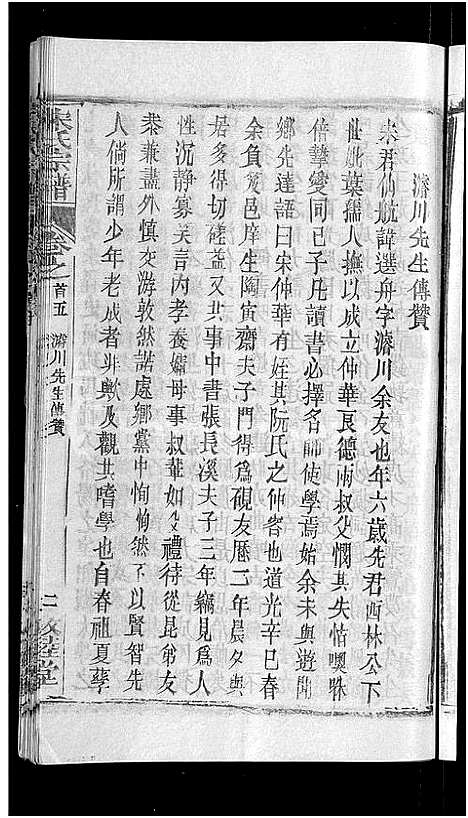 濟川先生傳贊
宋君仙航諱選舟字濟川余友也年六歲先君西林公下
世妣葉孺人撫以成立仲華良德兩叔父憫其失怙噢咻
倍摯變同已子凡讀書必擇名師使學焉始余未與遊聞
鄉先達語曰宋仲華有姪其阮氏之仲容也道光辛巳春
余負笈邑庠生陶寅齋夫子門得為硯友歷二年晨夕與
居多得切磋益又共事中書張長溪夫子三年竊見為人
性沉靜寡言內孝養孀母事叔華如父禮待從昆弟友
恭兼盡外慎交游敦然諾處鄉黨中恂恂然不以賢智先
人倘所謂少年老成者非歟及觀其嗜學也自春徂夏孳
宋氏宗譜
卷之
首五
濟川先生傳贊
二